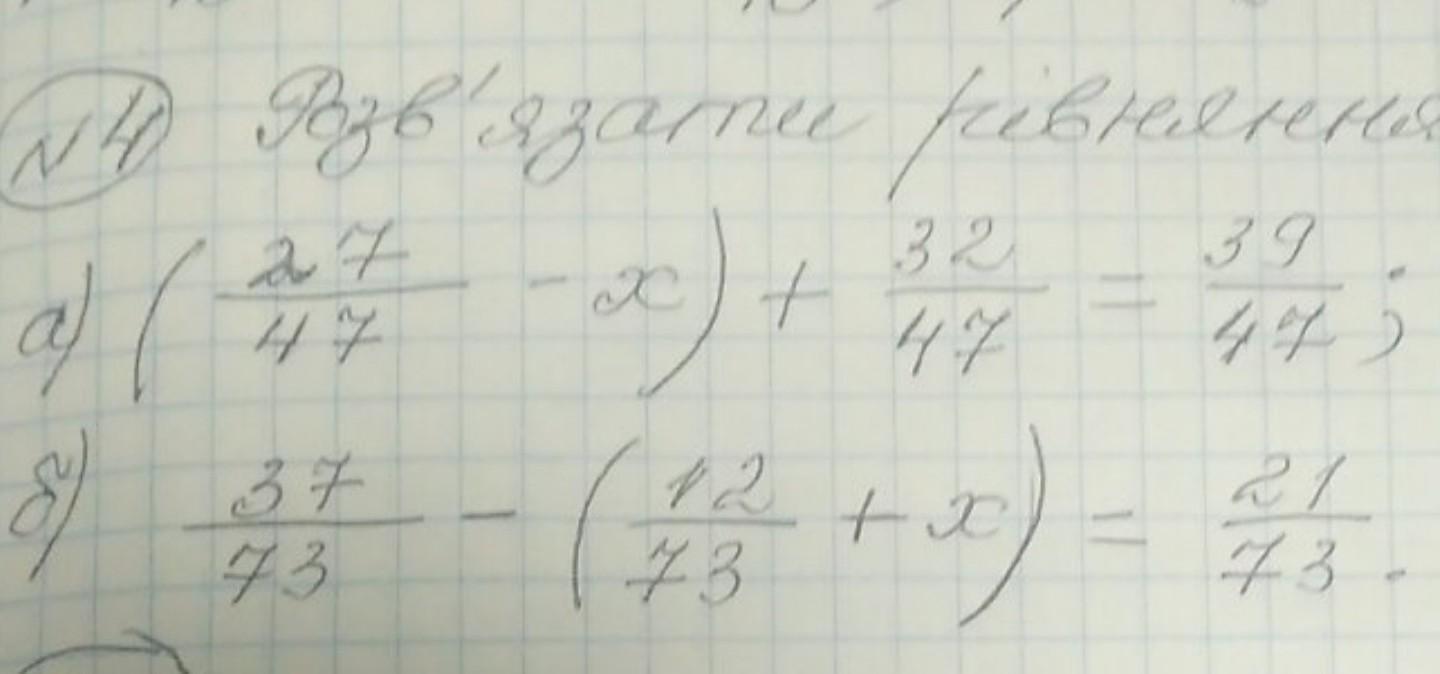 №4 Розв'язати рівняння
а) (27/47 - x) + 32/47 = 39/47;
б) 37/73 - (12/73 + x) = 21/73.